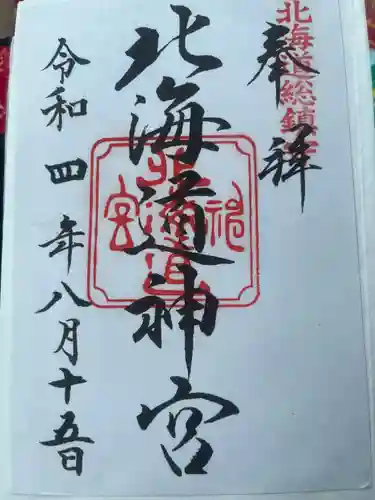 北海道総鎮守
奉拝
北海道神宮
令和四年八月十五日